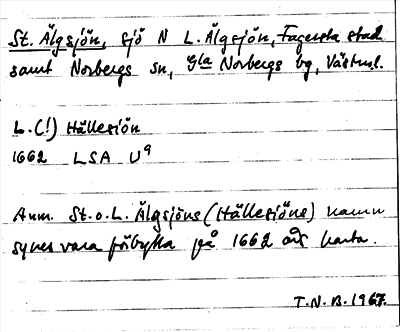 St. Älgsjön, sjö N L. Älgsjön, Fagersta stad
samt Norbergs sn, Gla Norbergs bg, Västml.
L.(!) Hällesiön
1662 LSA U9
Anm. St. o. L. Älgsjöns (Hällesiöns) namn
synes vara förbytta på 1662 års karta.
T.N.B. 1967.